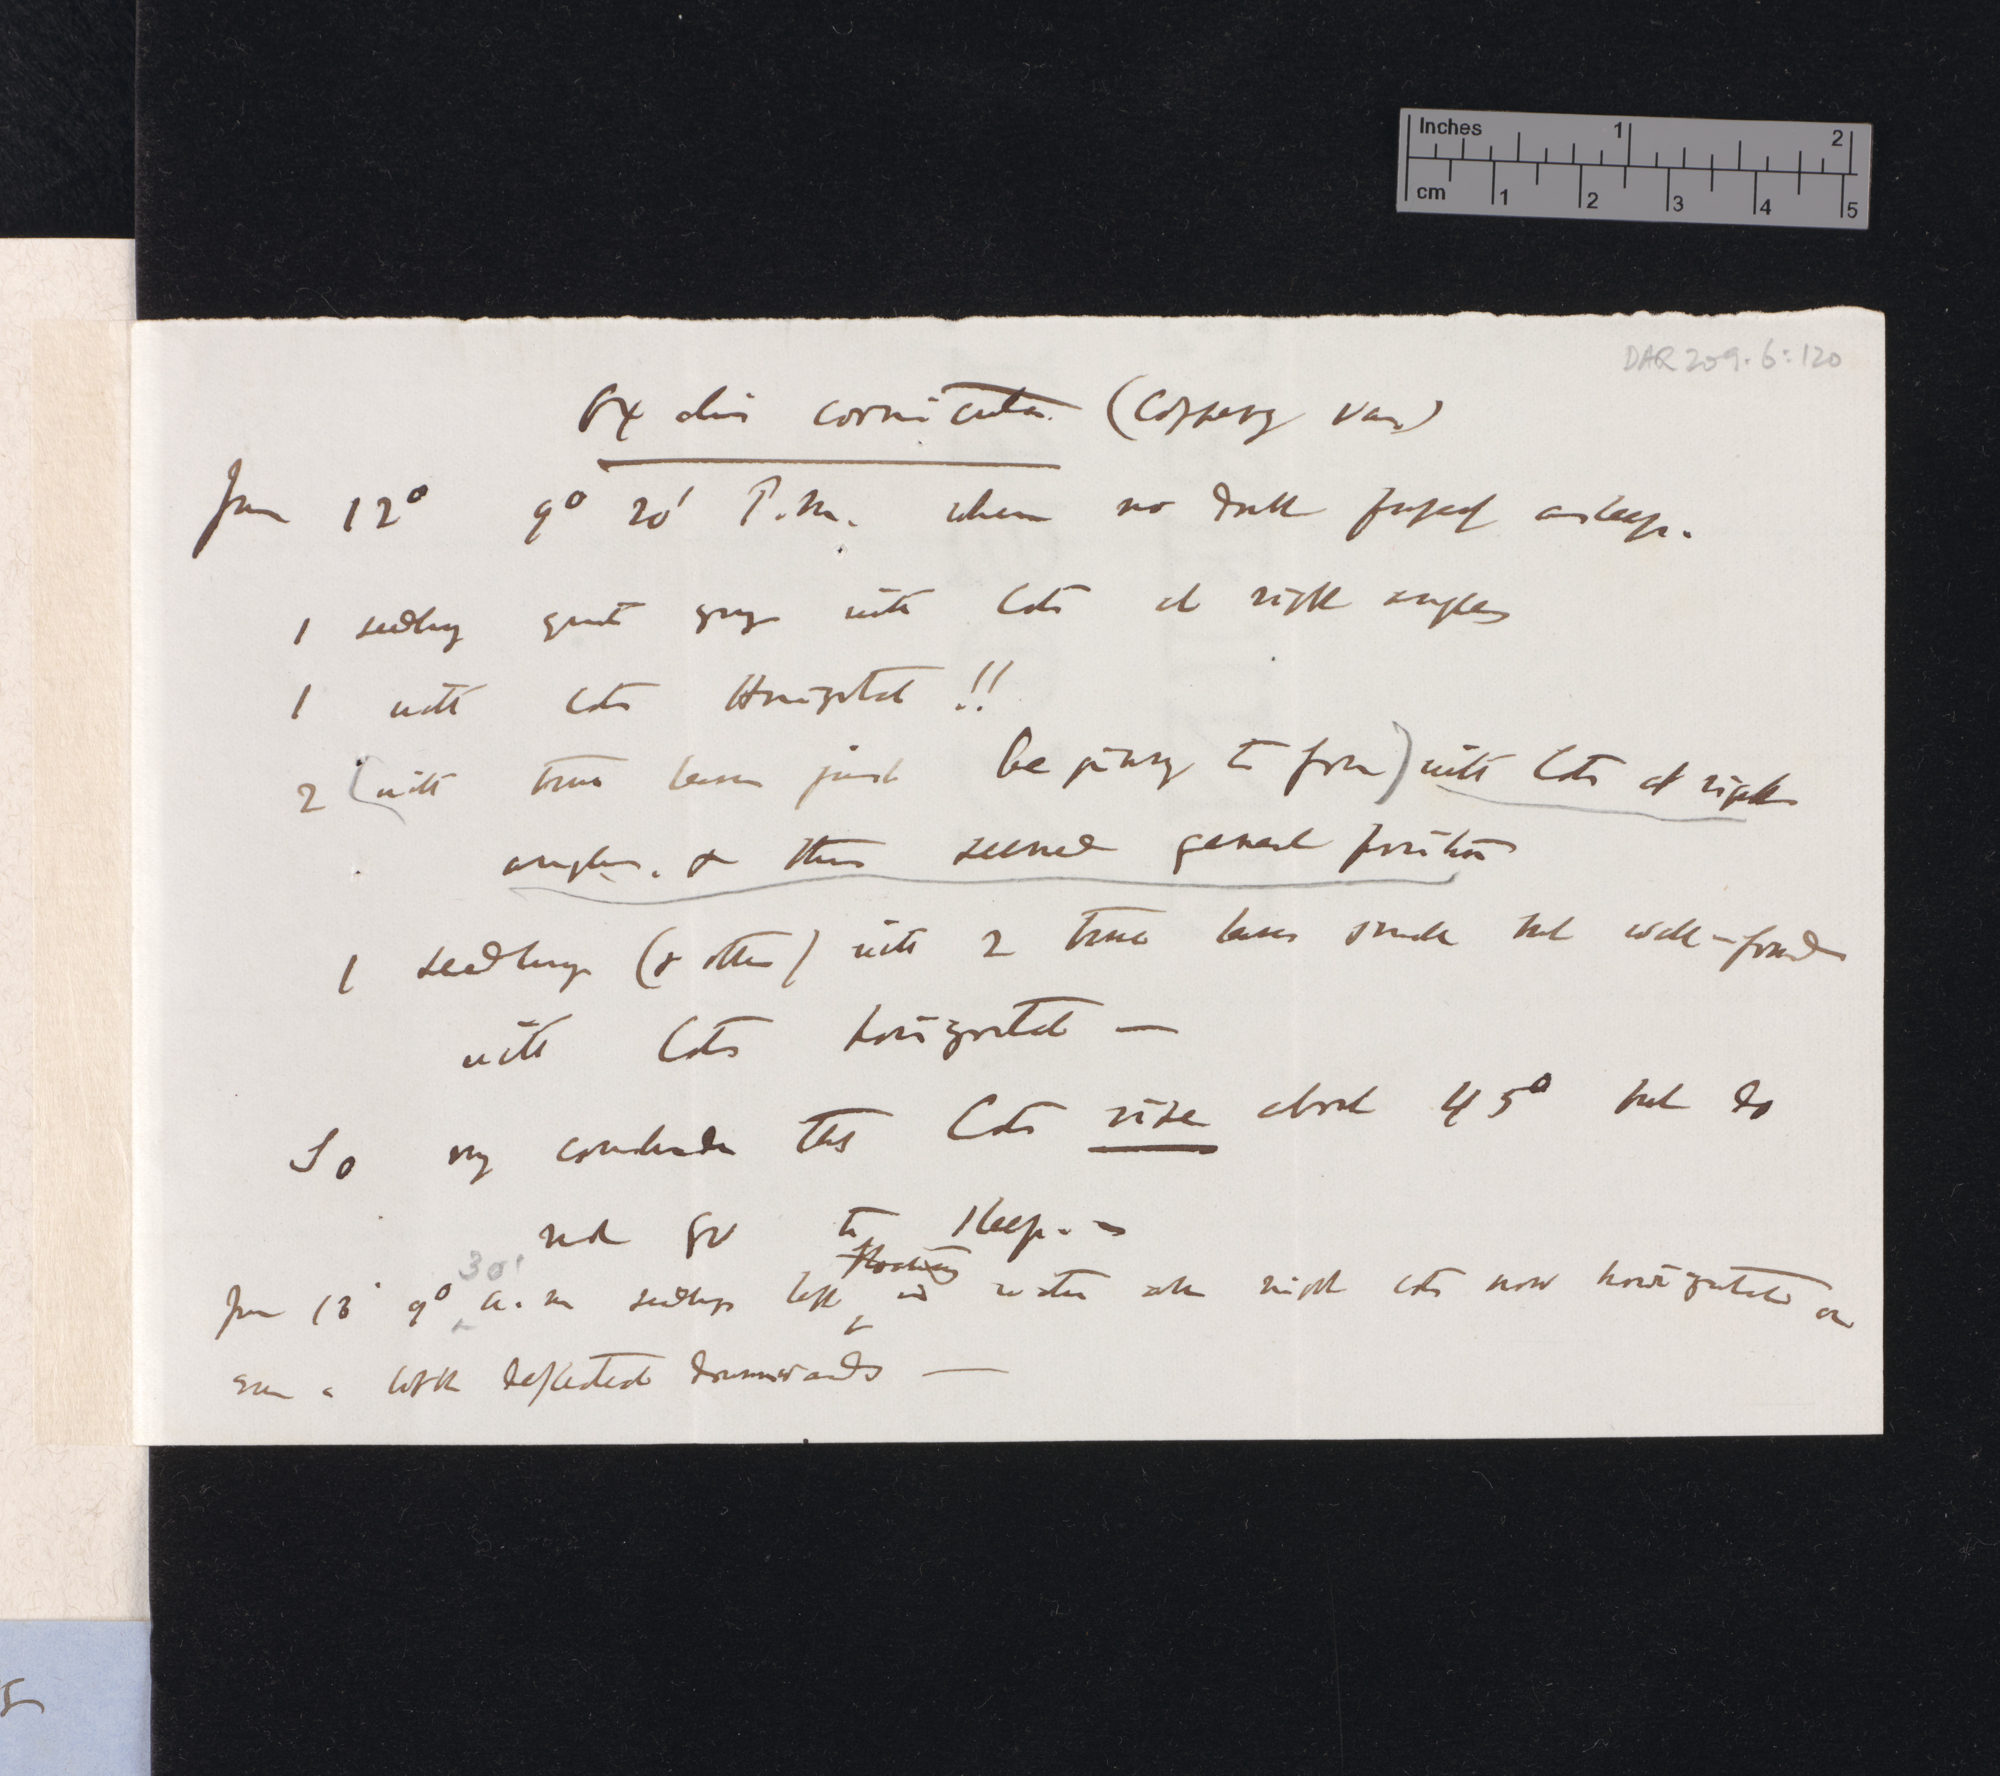 DAR 209.6:120
Oxalis corniculata (Coppery var)
June 12° 9° 20' P.m. when no doubt properly asleep.
1 seedling quite young with Cots at right angles
1 with Cots Horizontal !!
2 (with true leaves just beginning to form) with Cots at right
angles. & this seemed general position
1 seedling (& others) with 2 true leaves small but well-formed
with Cots horizontal —
So my conclusion that Cots rise about 45° but do
not go to sleep. —
June 13 9° 30' a.m seedlings left floating in water all night cots now horizontal or
even a little deflected downwards —
Inches 1 2
cm 1 2 3 4 5